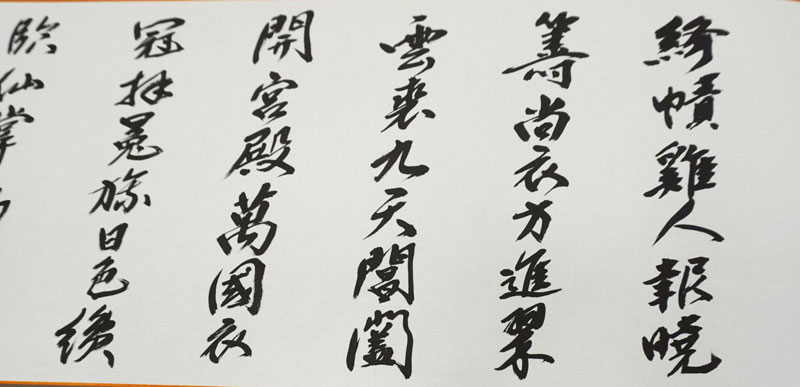 絳幘雞人報曉
籌尚衣方進翠
雲裘九天閶闔
開宮殿萬國衣
冠拜冕旒日色纔
臨仙掌